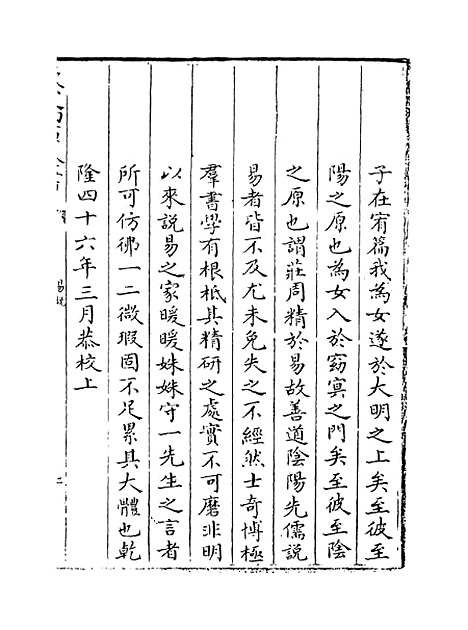 子在宥篇我為女遂於大明之上矣至彼至
陽之原也為女入於窈冥之門矣至彼至陰
之原也謂莊周精於易故善道陰陽先儒說
易者皆不及尤未免失之不經然士奇博極
羣書學有根柢其精研之處實不可磨非明
以來說易之家暖暖姝姝守一先生之言者
所可仿彿一二微瑕固不足累其大體也乾
隆四十六年三月恭校上
易說
二